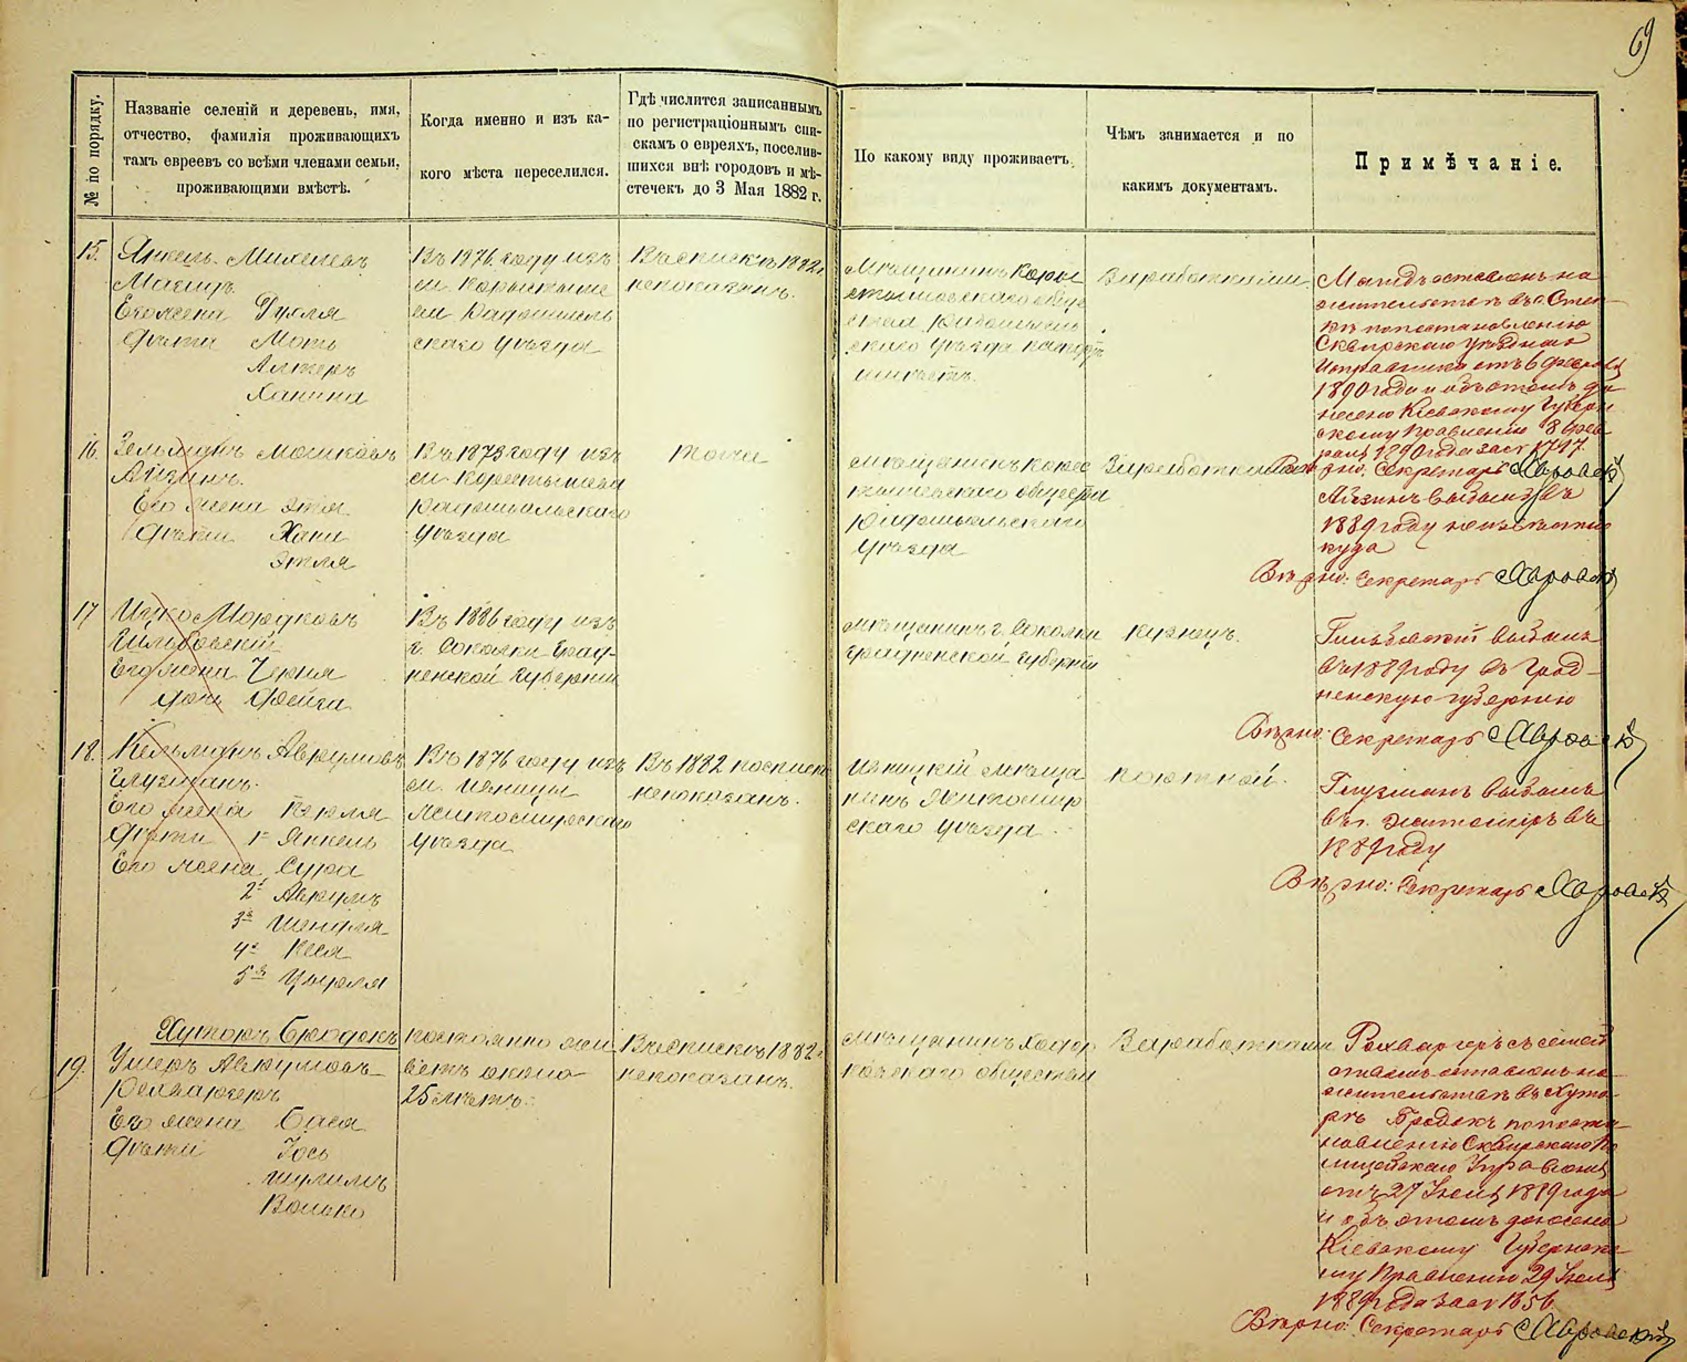 69
№ по порядку.
Названіе селеній и деревень, имя,
отчество, фамилія проживающихъ
тамъ евреевъ со всѣми членами семьи,
проживающими вмѣстѣ.
Когда именно и изъ ка-
кого мѣста переселился.
Гдѣ числится записаннымъ
по регистраціоннымъ спи-
скамъ о евреяхъ, поселив-
шихся внѣ городовъ и мѣ-
стечекъ до 3 Мая 1882 г.
По какому виду проживаетъ.
Чѣмъ занимается и по
какимъ документамъ.
Примѣчаніе.
15.
Янкель
Его жена Фуля
Дѣти Моть
Алтеръ
Ханина
Въ 1876 году изъ
скаго уѣзда
Въ спискѣ 1882 г.
непоказанъ.
Мѣщанинъ
скаго уѣзда
Заработками
жительствѣ въ с.
по постановленію
Сквирскаго уѣзднаго
Исправника отъ 6 Февраля
1890 года и объ этомъ до-
несено Кіевскому Губерн-
скому Правленію 8 Фев-
раля 1890 года за № 1797.
Вѣрно: Секретарь
16.
Зельманъ Мошковъ
Айзинъ.
Его жена Этля
Дѣти Хана
Этля
Въ 1873 году изъ
м. Коростышева
Радомысльскаго
Уѣзда
тоже
Мѣщанинъ Корос
тышевскаго общества
Радомысльскаго
Уѣзда
Заработками
Айзинъ выбылъ въ
1889 году неизвѣстно
куда
Вѣрно: Секретарь
17
Ицко Мордковъ
Его жена Черня
дочь Фейга
Въ 1886 году изъ
г. Соколки Грод-
ненской Губерніи
Мѣщанинъ г. Соколки
Гродненской Губерніи
Кузнецъ.
выбылъ
въ 1889 году въ Грод-
ненскую губернію
Вѣрно: Секретарь
18.
Кельманъ Аврумовъ
Глузманъ.
Его жена Перля
Дѣти 1 Янкель
Его жена Сура
2й Аврумъ
3я Шендля
4я Кеся
5я Цырля
Въ 1876 году изъ
м. Ивницы
Житомирскаго
Уѣзда
Въ 1882 по списк
непоказанъ.
Ивницкій мѣща
нинъ Житомир
скаго Уѣзда
портной.
Глузманъ выбылъ
въ г. Житоміръ въ
1889 году
Вѣрно: Секретарь
Хуторъ Бродокъ
19.
Умеръ Аврумовъ
Его жена Бася
Дѣти Іось
Шулимъ
Волько
постоянно жи
ветъ около
25 лѣтъ.
Въ спискѣ 1882 г.
непоказанъ.
Мѣщанинъ Ходор
ковскаго общества
Заработками
съ семей
оставленъ на
жительствѣ въ Хуто-
рѣ Бродокъ по поста-
новленію Сквирскаго По
лицейскаго Управленія
отъ 27 Іюля 1889 года
и объ этомъ донесено
Кіевскому Губернско-
му Правленію 29 Іюля
1889 года за № 1856.
Вѣрно: Секретарь